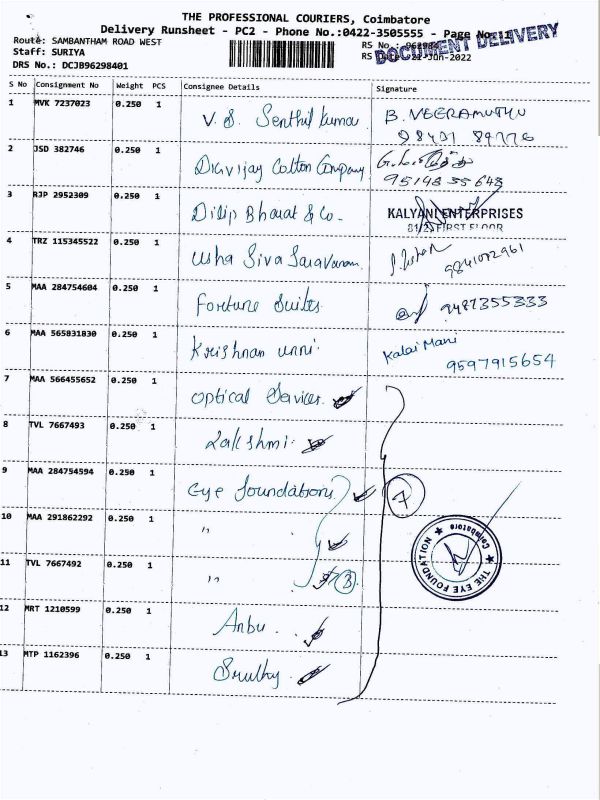 THE PROFESSIONAL COURIERS, Coimbatore
Delivery Runsheet - PC2 - Phone No.:0422-3505555 - Page No.:1
DOCUMENT DELIVERY
Route: SAMBANTHAM ROAD WEST
Staff: SURIYA
DRS No.: DCJB96298401
RS No.:
22-Jun-2022
S No Consignment No Weight PCS Consignee Details Signature
1 MVK 7237023 0.250 1 V. S. Senthil Kumar B. VEERAMUTHU
2 JSD 382746 0.250 1 Digvijay Cotton Company
3 RJP 2952309 0.250 1 Dilip Bharat & Co- KALYANI ENTERPRISES
81/2, FIRST FLOOR
4 TRZ 115345522 0.250 1 Usha Siva Saravanan
5 MAA 284754604 0.250 1 Fortune Suites 9487355333
6 MAA 565831830 0.250 1 Krishnan unni Kalai Mani
9597915654
7 MAA 566455652 0.250 1 Optical Services
8 TVL 7667493 0.250 1 Lakshmi
9 MAA 284754594 0.250 1 Eye foundations 7
10 MAA 291862292 0.250 1 "
11 TVL 7667492 0.250 1 " 3
THE EYE FOUNDATION ★ Coimbatore ★
12 MRT 1210599 0.250 1 Anbu
13 MTP 1162396 0.250 1 Sruthy